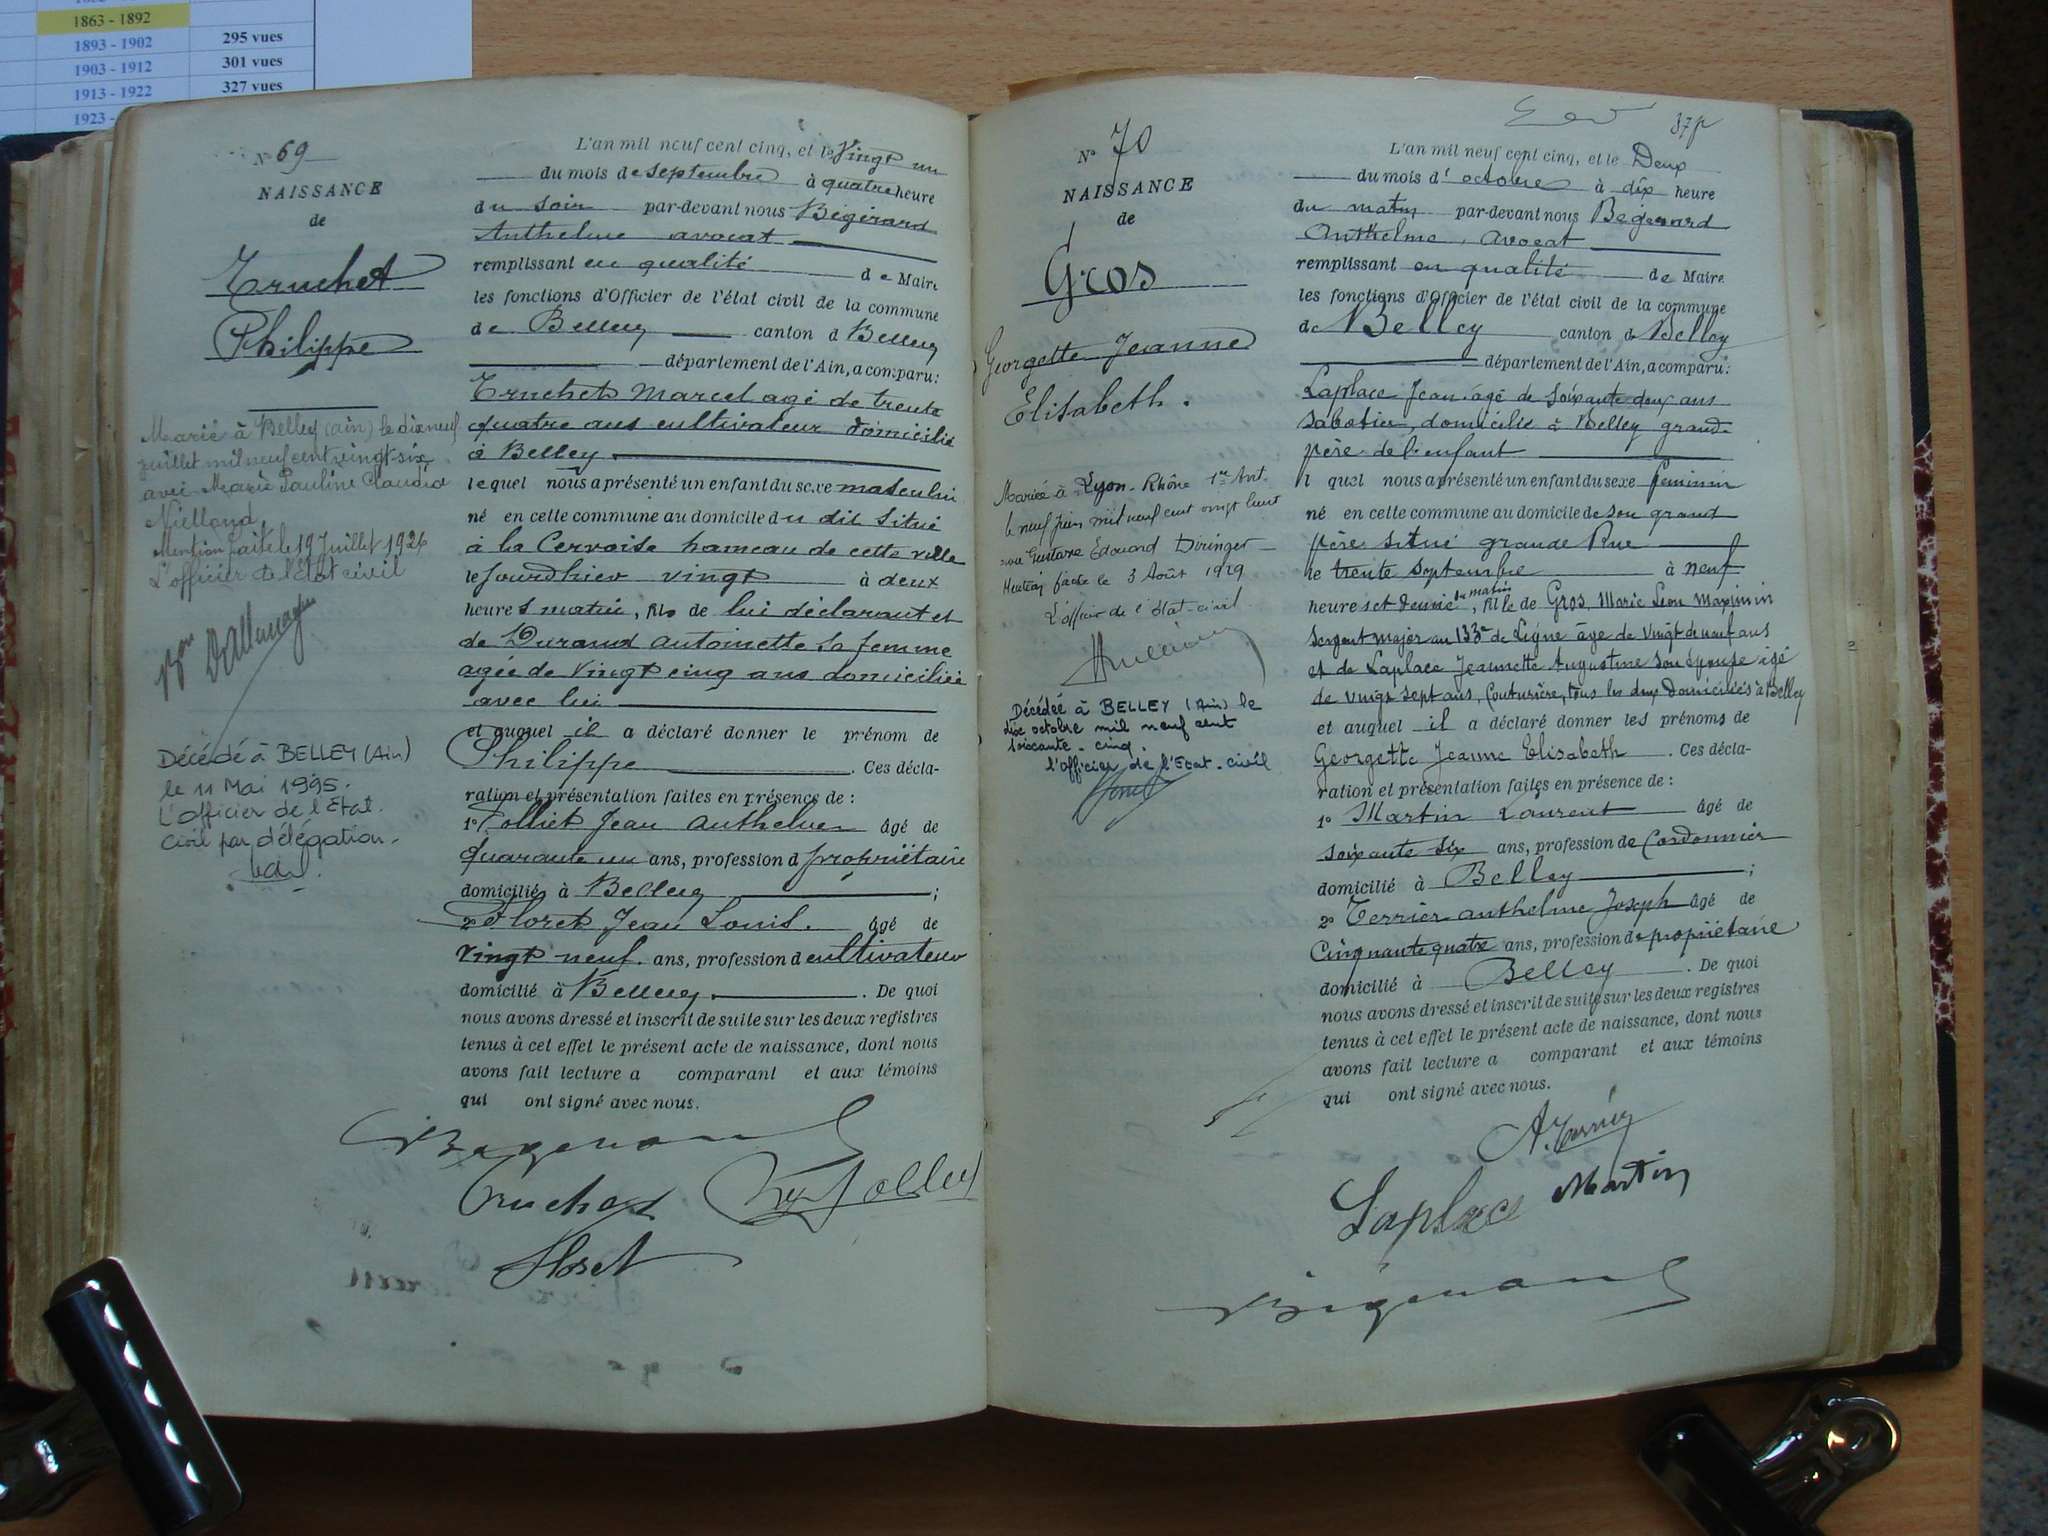 1863 - 1892
1893 - 1902 295 vues
1903 - 1912 301 vues
1913 - 1922 327 vues
1923 -
N° 69
NAISSANCE
de
Truchet
Philippe
Marié à Belley (ain) le dix neuf
juillet mil neuf cent vingt-six
avec Marie Pauline Claudia
Mention faite le 19 Juillet 1926
L'officier de l'Etat civil
Décédé à BELLEY (Ain)
le 11 Mai 1995.
L'officier de l'Etat.
Civil par délégation.
L'an mil neuf cent cinq, et le Vingt un
du mois de septembre à quatre heure
du soir par-devant nous Bégérard
Anthelme avocat
remplissant en qualité de Maire
les fonctions d'Officier de l'état civil de la commune
de Belley canton d Belley
département de l'Ain, a comparu:
Truchet Marcel agé de trente
quatre ans cultivateur domicilié
à Belley
lequel nous a présenté un enfant du sexe masculin
né en cette commune au domicile du dit situé
à la Cervoise hameau de cette ville
le jourdhier vingt à deux
heures matin, fils de lui déclarant et
de Durand Antoinette sa femme
agée de vingt cinq ans domiciliée
avec lui
et auquel il a déclaré donner le prénom de
Philippe . Ces décla-
ration et présentation faites en présence de :
1° Polliet Jean Anthelme âgé de
quarante un ans, profession d propriétaire
domicilié à Belley ;
2° Floret Jean Louis. âgé de
vingt neuf. ans, profession d cultivateur
domicilié à Belley. . De quoi
nous avons dressé et inscrit de suite sur les deux registres
tenus à cet effet le présent acte de naissance, dont nous
avons fait lecture a comparant et aux témoins
qui ont signé avec nous.
Bégérard
Truchet Polliet
Floret
37
N° 70
NAISSANCE
de
Gros
Georgette Jeanne
Elisabeth.
Mariée à Lyon-Rhône 1er Arrt.
le neuf juin mil neuf cent vingt huit
avec Gustave Edouard Diringer
Mention faite le 3 Août 1929
L'officier de l'état-civil
Décédée à BELLEY (Ain) le
dix octobre mil neuf cent
soixante-cinq.
l'officier de l'Etat-civil
L'an mil neuf cent cinq, et le Deux
du mois d'octobre à dix heure
du matin par-devant nous Bégérard
Anthelme, avocat
remplissant en qualité de Maire
les fonctions d'Officier de l'état civil de la commune
de Belley canton d Belley
département de l'Ain, a comparu:
Laplace Jean âgé de Soixante deux ans
Sabotier, domicilié à Belley grand-
père de l'enfant
l quel nous a présenté un enfant du sexe feminin
né en cette commune au domicile de son grand
père situé grande Rue
le trente septembre à neuf
heures et demie du matin, fille de Gros, Marie Léon Maximin
Sergent major au 133e de Ligne âgé de vingt neuf ans
et de Laplace Jeannette Augustine son épouse agé
de vingt sept ans, Couturière, tous les deux domiciliés à Belley
et auquel il a déclaré donner les prénoms de
Georgette Jeanne Elisabeth . Ces décla-
ration et présentation faites en présence de :
1° Martin Laurent âgé de
soixante six ans, profession de Cordonnier
domicilié à Belley ;
2° Terrier Anthelme Joseph âgé de
Cinquante quatre ans, profession d propriétaire
domicilié à Belley . De quoi
nous avons dressé et inscrit de suite sur les deux registres
tenus à cet effet le présent acte de naissance, dont nous
avons fait lecture a comparant et aux témoins
qui ont signé avec nous.
A. Terrier
Laplace Martin
Bégérard